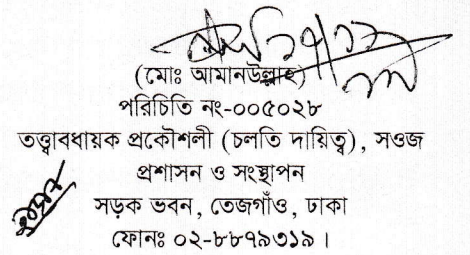 (মোঃ আমানউল্লাহ)
পরিচিতি নং-০০৫০২৮
তত্ত্বাবধায়ক প্রকৌশলী (চলতি দায়িত্ব), সওজ
প্রশাসন ও সংস্থাপন
সড়ক ভবন, তেজগাঁও, ঢাকা
ফোনঃ ০২-৮৮৭৯৩১৯।